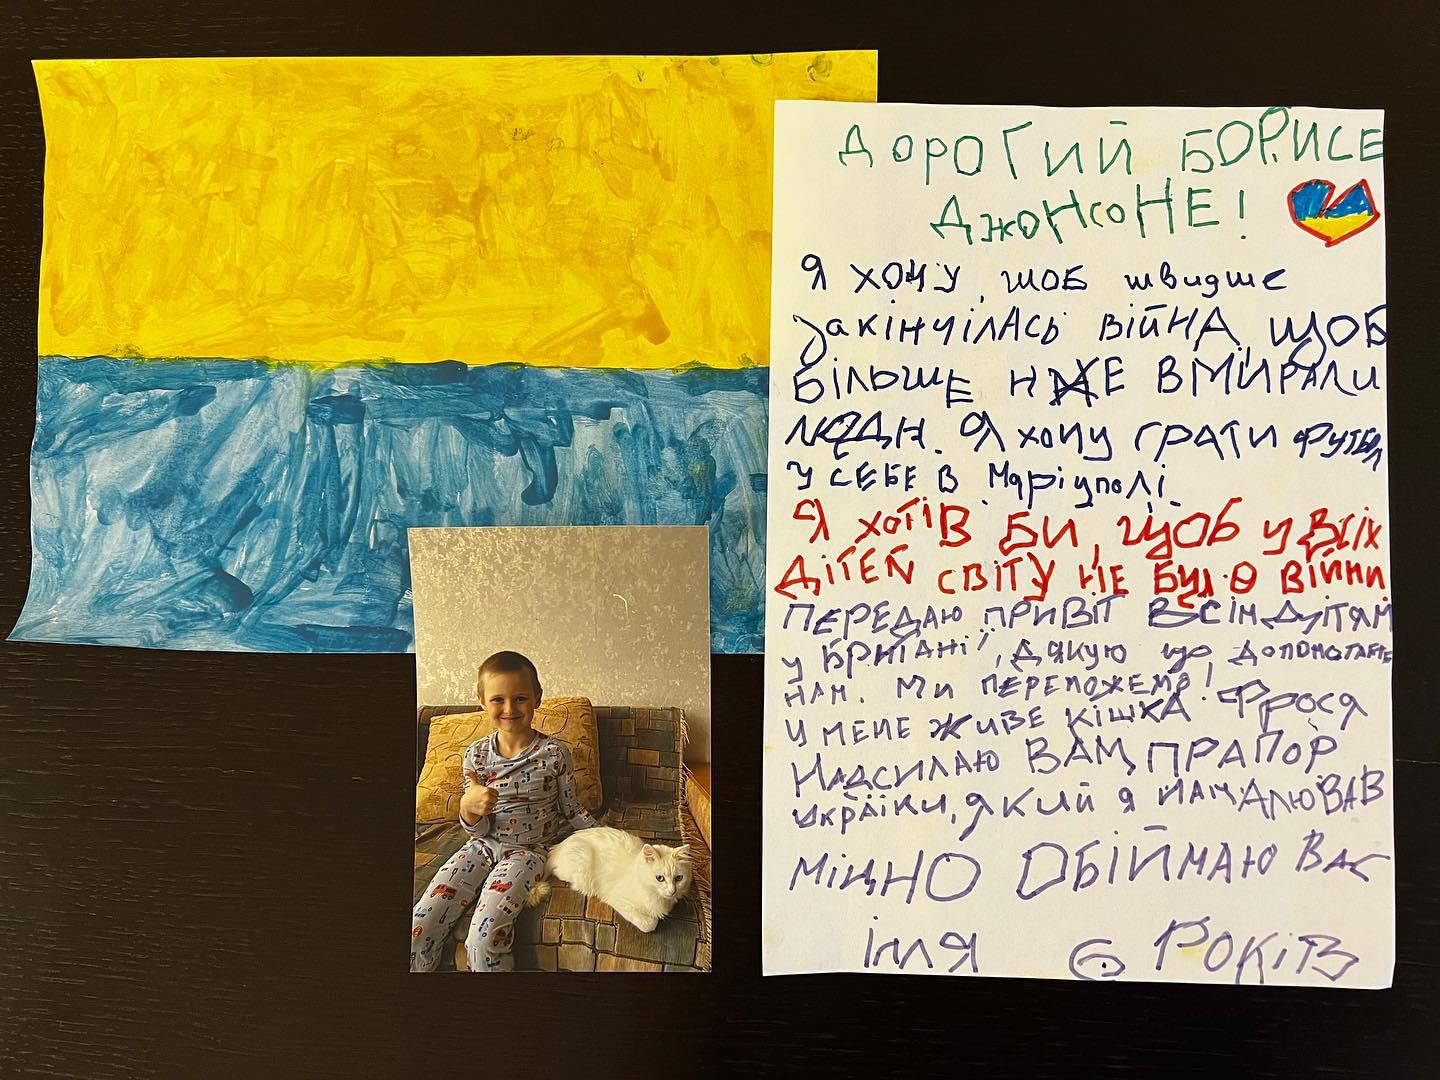 ДОРОГИЙ БОРИСЕ
ДЖОНСОНЕ!
Я ХОЧУ, ЩОБ швидше
закінчілАсь ВІЙНА, ЩОБ
БІЛЬШЕ НЕ ВМИРАЛИ
ЛЮДИ. Я хочу ГРАТИ ФУТБОЛ
У СЕБЕ В Маріуполі.
Я ХОТІВ БИ, ЩОБ У ВСІХ
ДІТЕЙ СВІТУ НЕ БУЛО ВІЙНИ
ПЕРЕДАЮ ПРИВІТ ВСІМ ДІТЯМ
У БРИТАНІЇ, ДЯКУЮ що ДОПОМАГАЄТЕ
НАМ. МИ ПЕРЕМОЖЕМО!
У МЕНЕ ЖИВЕ КІШКА ФРОСЯ
НАДСИЛАЮ ВАМ ПРАПОР
України, ЯКИЙ Я НАМАЛЮВАВ
МІЦНО ОБІЙМАЮ ВАС
ІЛЛЯ 6 РОКІВ